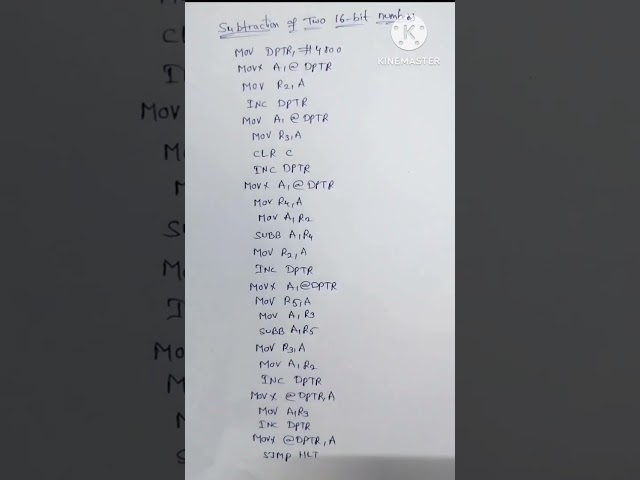 Subtraction of Two 16-bit numbers
KINEMASTER
MOV DPTR, #4100
MOVX A, @ DPTR
MOV R2, A
INC DPTR
MOV A, @ DPTR
MOV R3, A
CLR C
INC DPTR
MOVX A, @ DPTR
MOV R4, A
MOV A, R2
SUBB A, R4
MOV R2, A
INC DPTR
MOVX A, @DPTR
MOV R5, A
MOV A, R3
SUBB A, R5
MOV R3, A
MOV A, R2
INC DPTR
MOVX @DPTR, A
MOV A, R3
INC DPTR
MOVX @DPTR, A
SJMP HLT